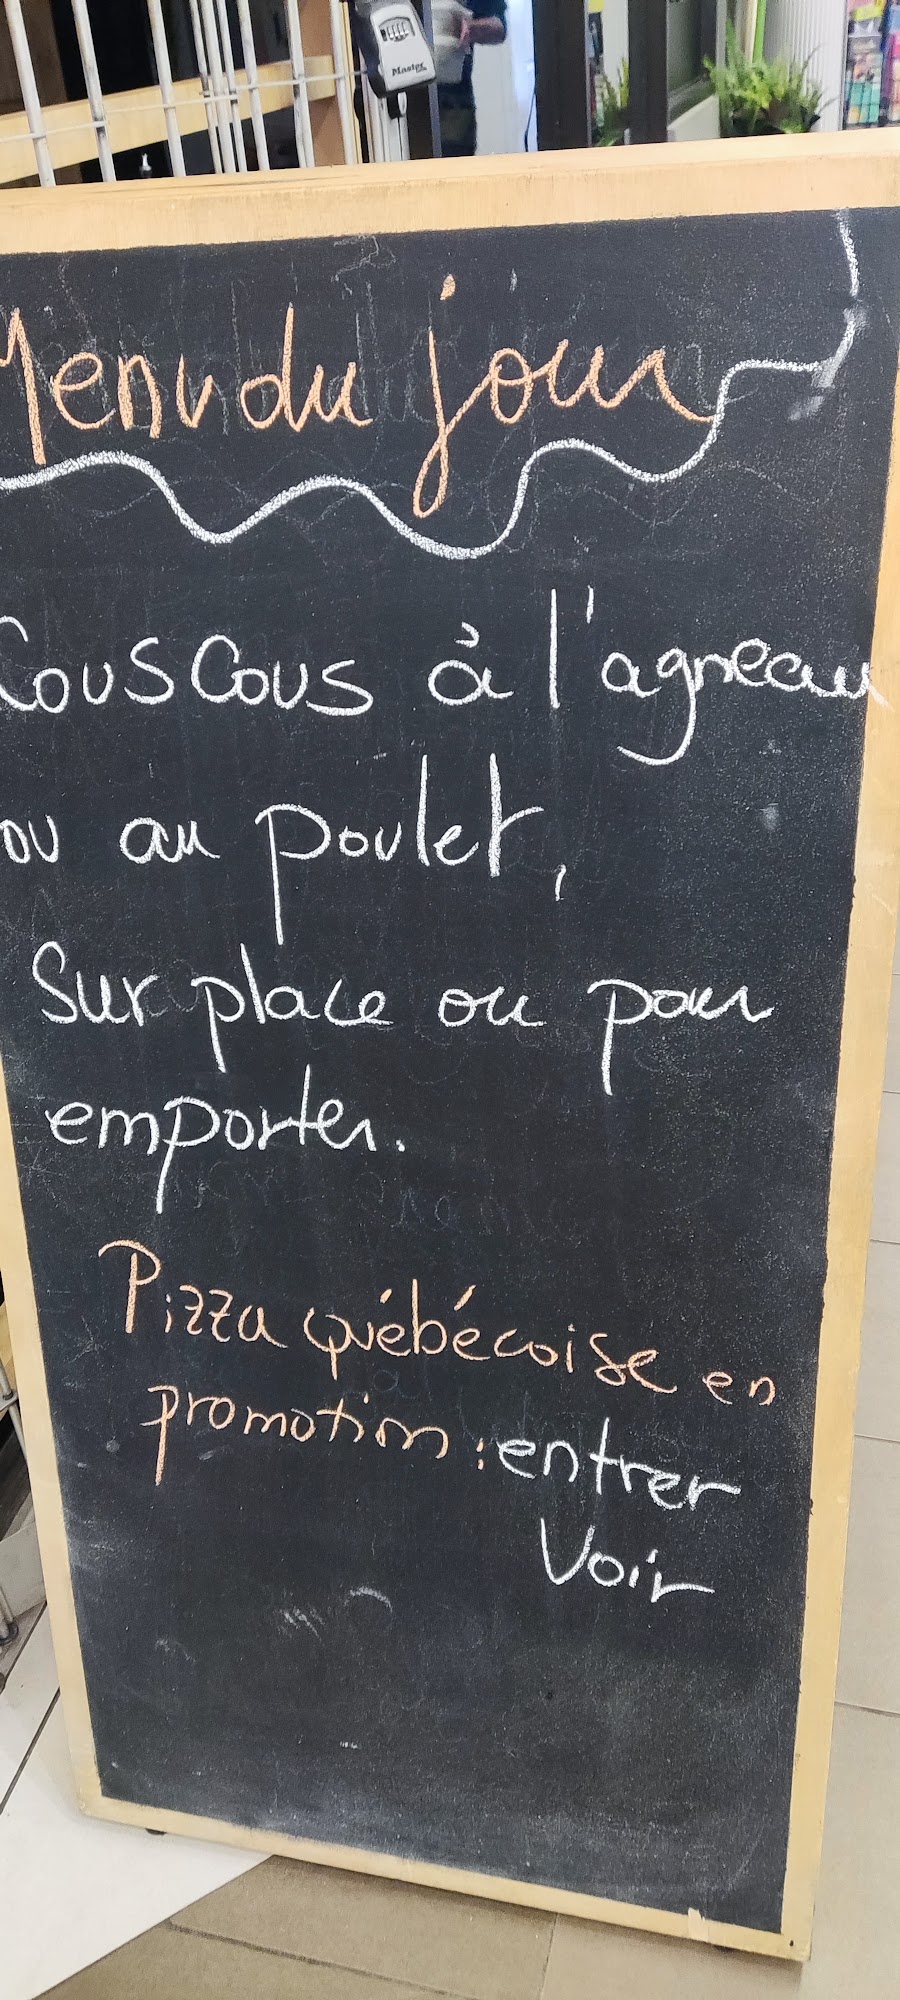 Master
Menu du jour
Couscous à l'agneau
ou au poulet,
Sur place ou pour
emporter.
Pizza québécoise en
promotion : entrer
Voir